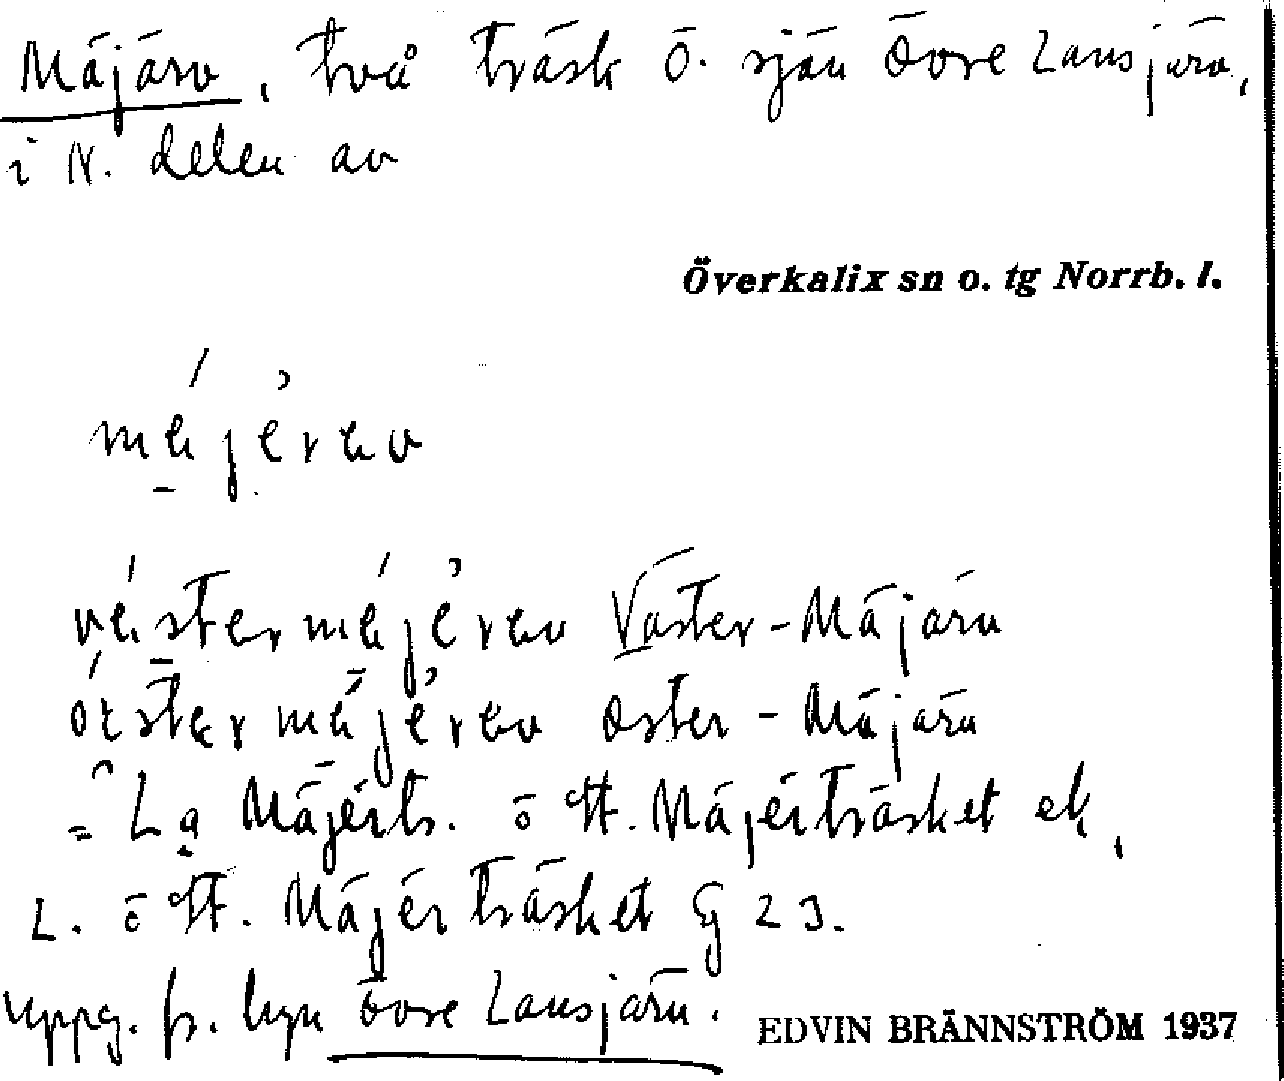 Mäjärv, två träsk ö. sjön Övre Lansjärv,
i N. delen av
Överkalix sn o. tg Norrb. l.
Väster-Mäjärv
Öster-Mäjärv
= L a Mäjertr. o St. Mäjerträsket ek,
L. o St. Mäjerträsket G 23.
uppg. fr. byn Övre Lansjärv.
EDVIN BRÄNNSTRÖM 1937